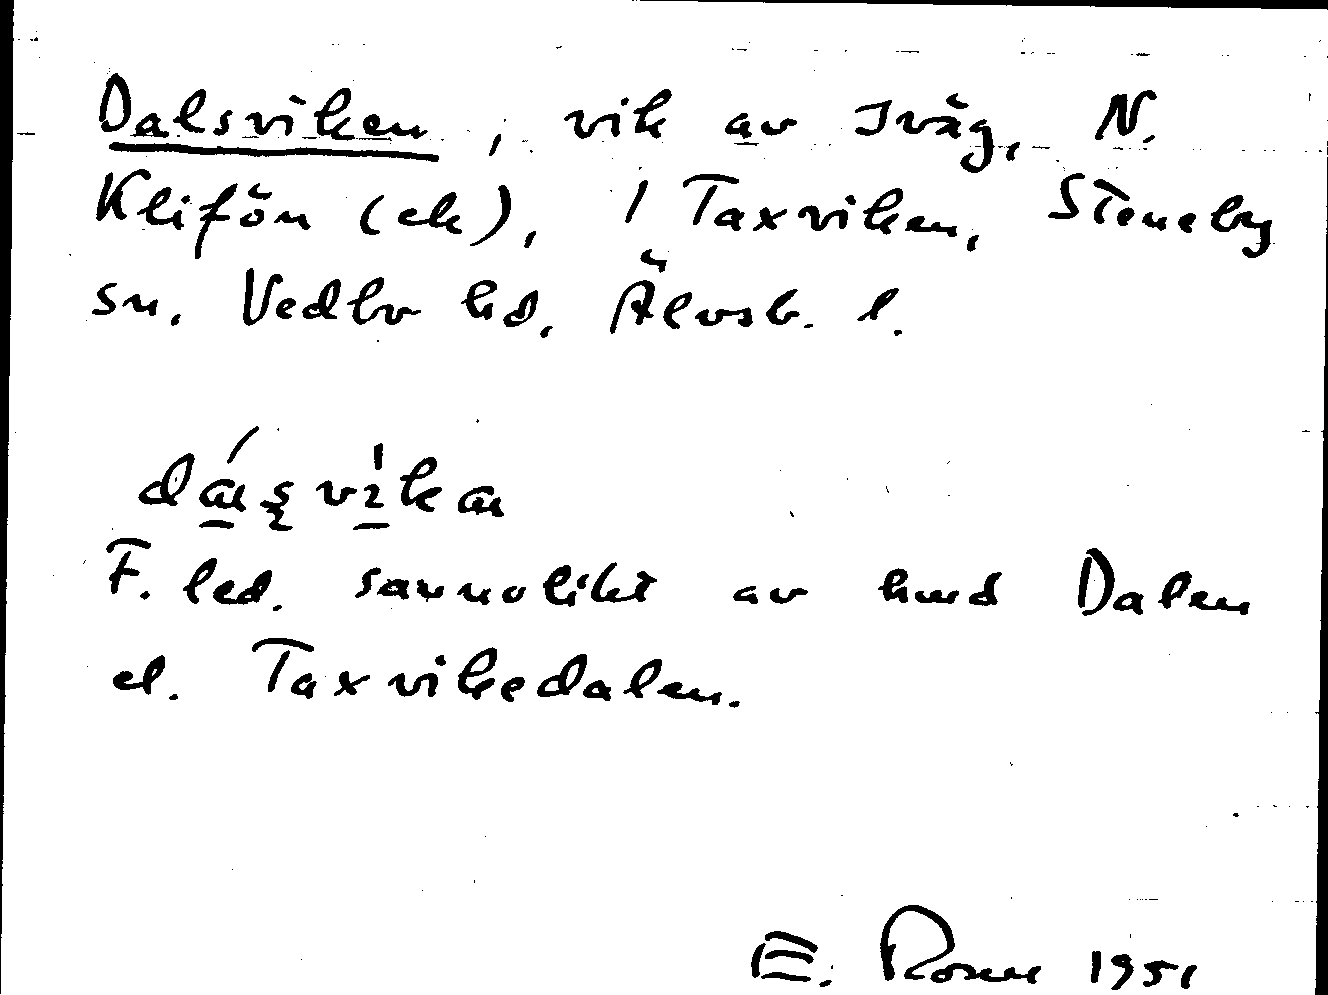 Dalsviken, vik av Iväg, N.
Klifön (ek), 1 Taxviken, Steneby
sn. Vedbo hd. Älvsb. l.
F. led. sannolikt av hmd Dalen
el. Taxvikedalen.
E. Rosell 1951